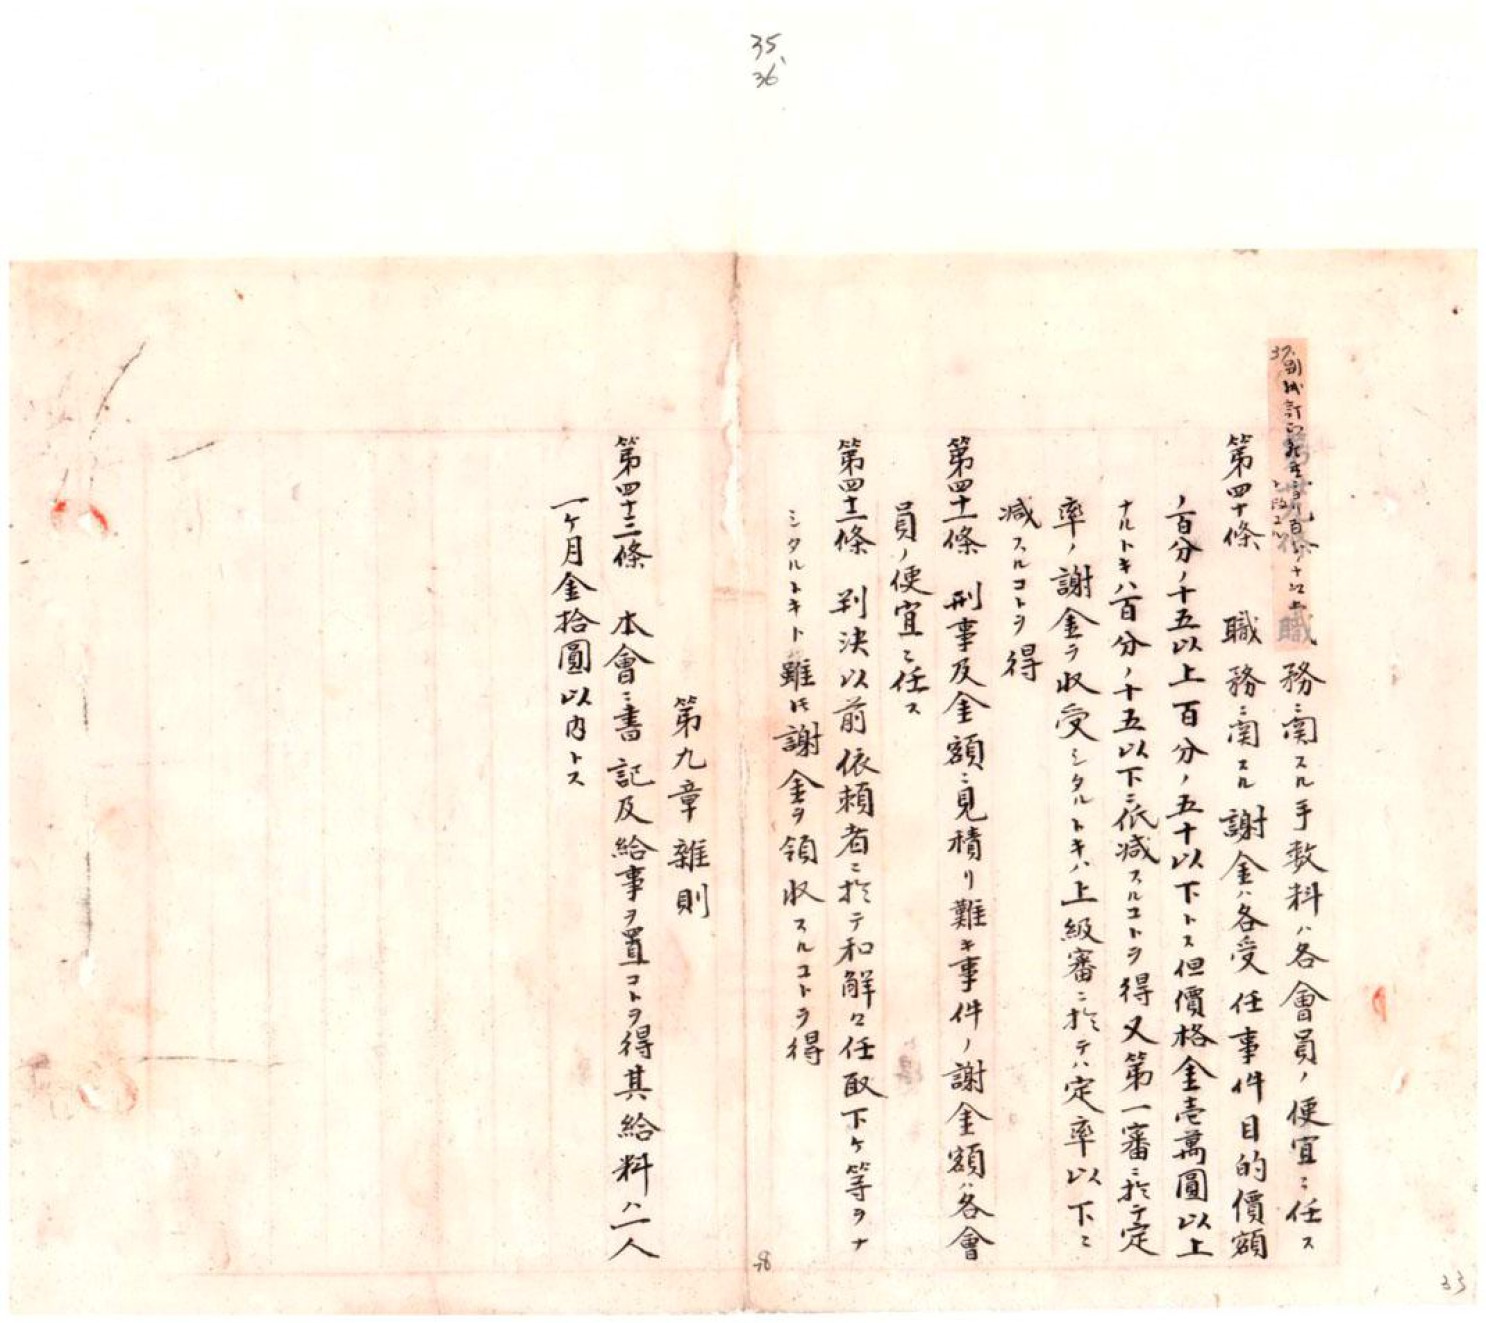 35
36
職務ニ関スル手数料ハ各會員ノ便宜ニ任ス
第四十條　職務ニ関スル謝金ハ各受任事件目的價額
ノ百分ノ十五以上百分ノ五十以下トス但價格金壱萬圓以上
ナルトキハ百分ノ十五以下ニ低減スルコトヲ得又第一審ニ於テ定
率ノ謝金ヲ収受シタルトキハ上級審ニ於テハ定率以下ニ
減スルコトヲ得
第四十一條　刑事及金額ニ見積リ難キ事件ノ謝金額ハ各會
員ノ便宜ニ任ス
第四十二條　判決以前依頼者ニ於テ和解口任取下ケ等ヲナ
シタルトキト雖圧謝金ヲ領収スルコトヲ得
第九章雑則
第四十三條　本會ニ書記及給事ヲ置コトヲ得其給料ハ一人
一ケ月金拾圓以内トス
33